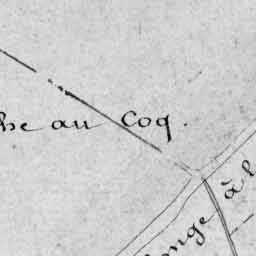 he au Coq.
onge à l